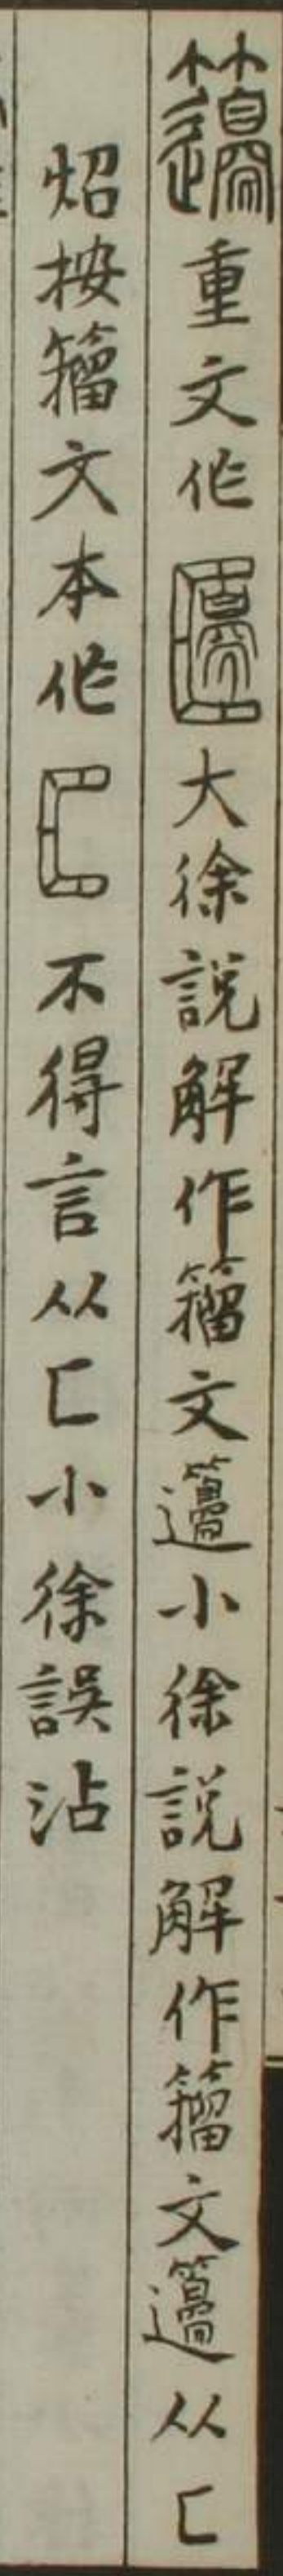 籩重文作𠥓大徐說解作籀文籩小徐說解作籀文籩从匚
炤按籀文本作匚不得言从匚小徐誤沾